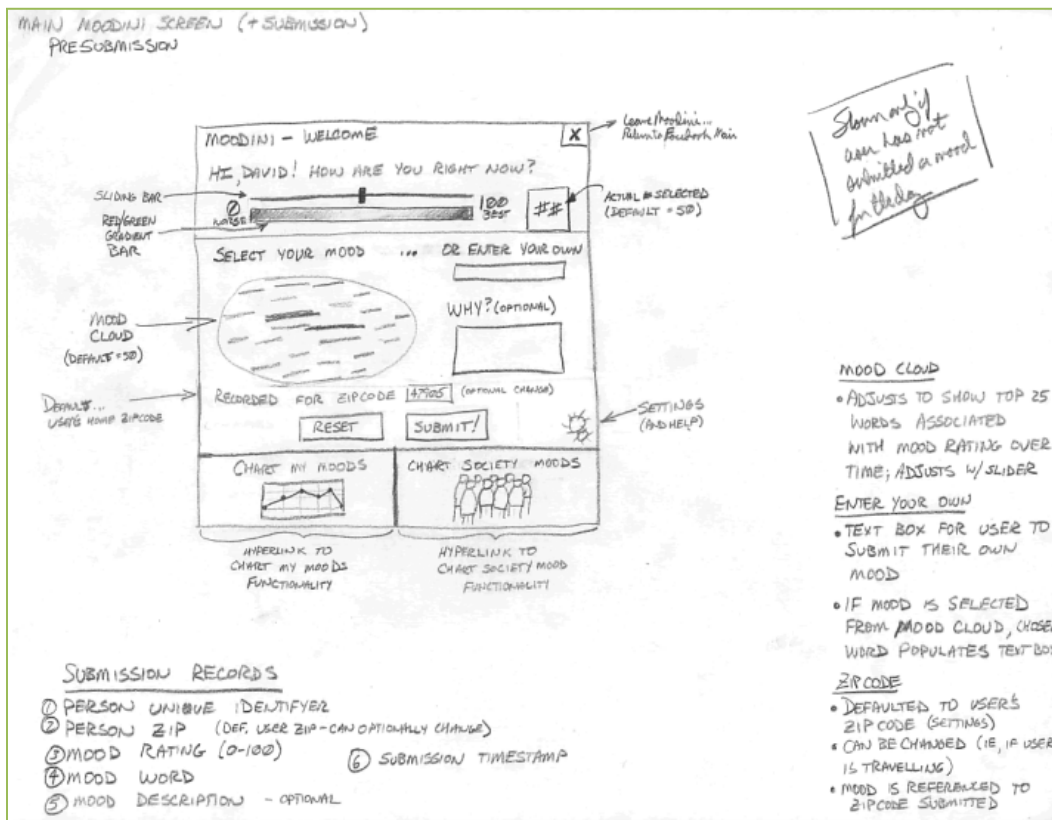 MAIN MOODINI SCREEN (+ SUBMISSION)
PRESUBMISSION
Shown only if
user has not
submitted a mood
for the day
MOODINI - WELCOME
X
Leave Moodini...
Return to Facebook Main
HI, DAVID! HOW ARE YOU RIGHT NOW?
SLIDING BAR
0
WORSE
100
BEST
##
ACTUAL # SELECTED
(DEFAULT = 50)
RED/GREEN
GRADIENT
BAR
SELECT YOUR MOOD ... OR ENTER YOUR OWN
WHY? (OPTIONAL)
MOOD
CLOUD
(DEFAULT = 50)
DEFAULT...
USER'S HOME ZIPCODE
RECORDED FOR ZIPCODE 47905 (OPTIONAL CHANGE)
RESET
SUBMIT!
SETTINGS
(AND HELP)
CHART MY MOODS
CHART SOCIETY MOODS
HYPERLINK TO
CHART MY MOODS
FUNCTIONALITY
HYPERLINK TO
CHART SOCIETY MOOD
FUNCTIONALITY
MOOD CLOUD
• ADJUSTS TO SHOW TOP 25
WORDS ASSOCIATED
WITH MOOD RATING OVER
TIME; ADJUSTS W/ SLIDER
ENTER YOUR OWN
• TEXT BOX FOR USER TO
SUBMIT THEIR OWN
MOOD
• IF MOOD IS SELECTED
FROM MOOD CLOUD, CHOSEN
WORD POPULATES TEXT BOX
ZIPCODE
• DEFAULTED TO USER'S
ZIP CODE (SETTINGS)
• CAN BE CHANGED (IE, IF USER
IS TRAVELLING)
• MOOD IS REFERENCED TO
ZIPCODE SUBMITTED
SUBMISSION RECORDS
① PERSON UNIQUE IDENTIFYER
② PERSON ZIP (DEF. USER ZIP - CAN OPTIONALLY CHANGE)
③ MOOD RATING (0-100)
④ MOOD WORD
⑤ MOOD DESCRIPTION - OPTIONAL
⑥ SUBMISSION TIMESTAMP